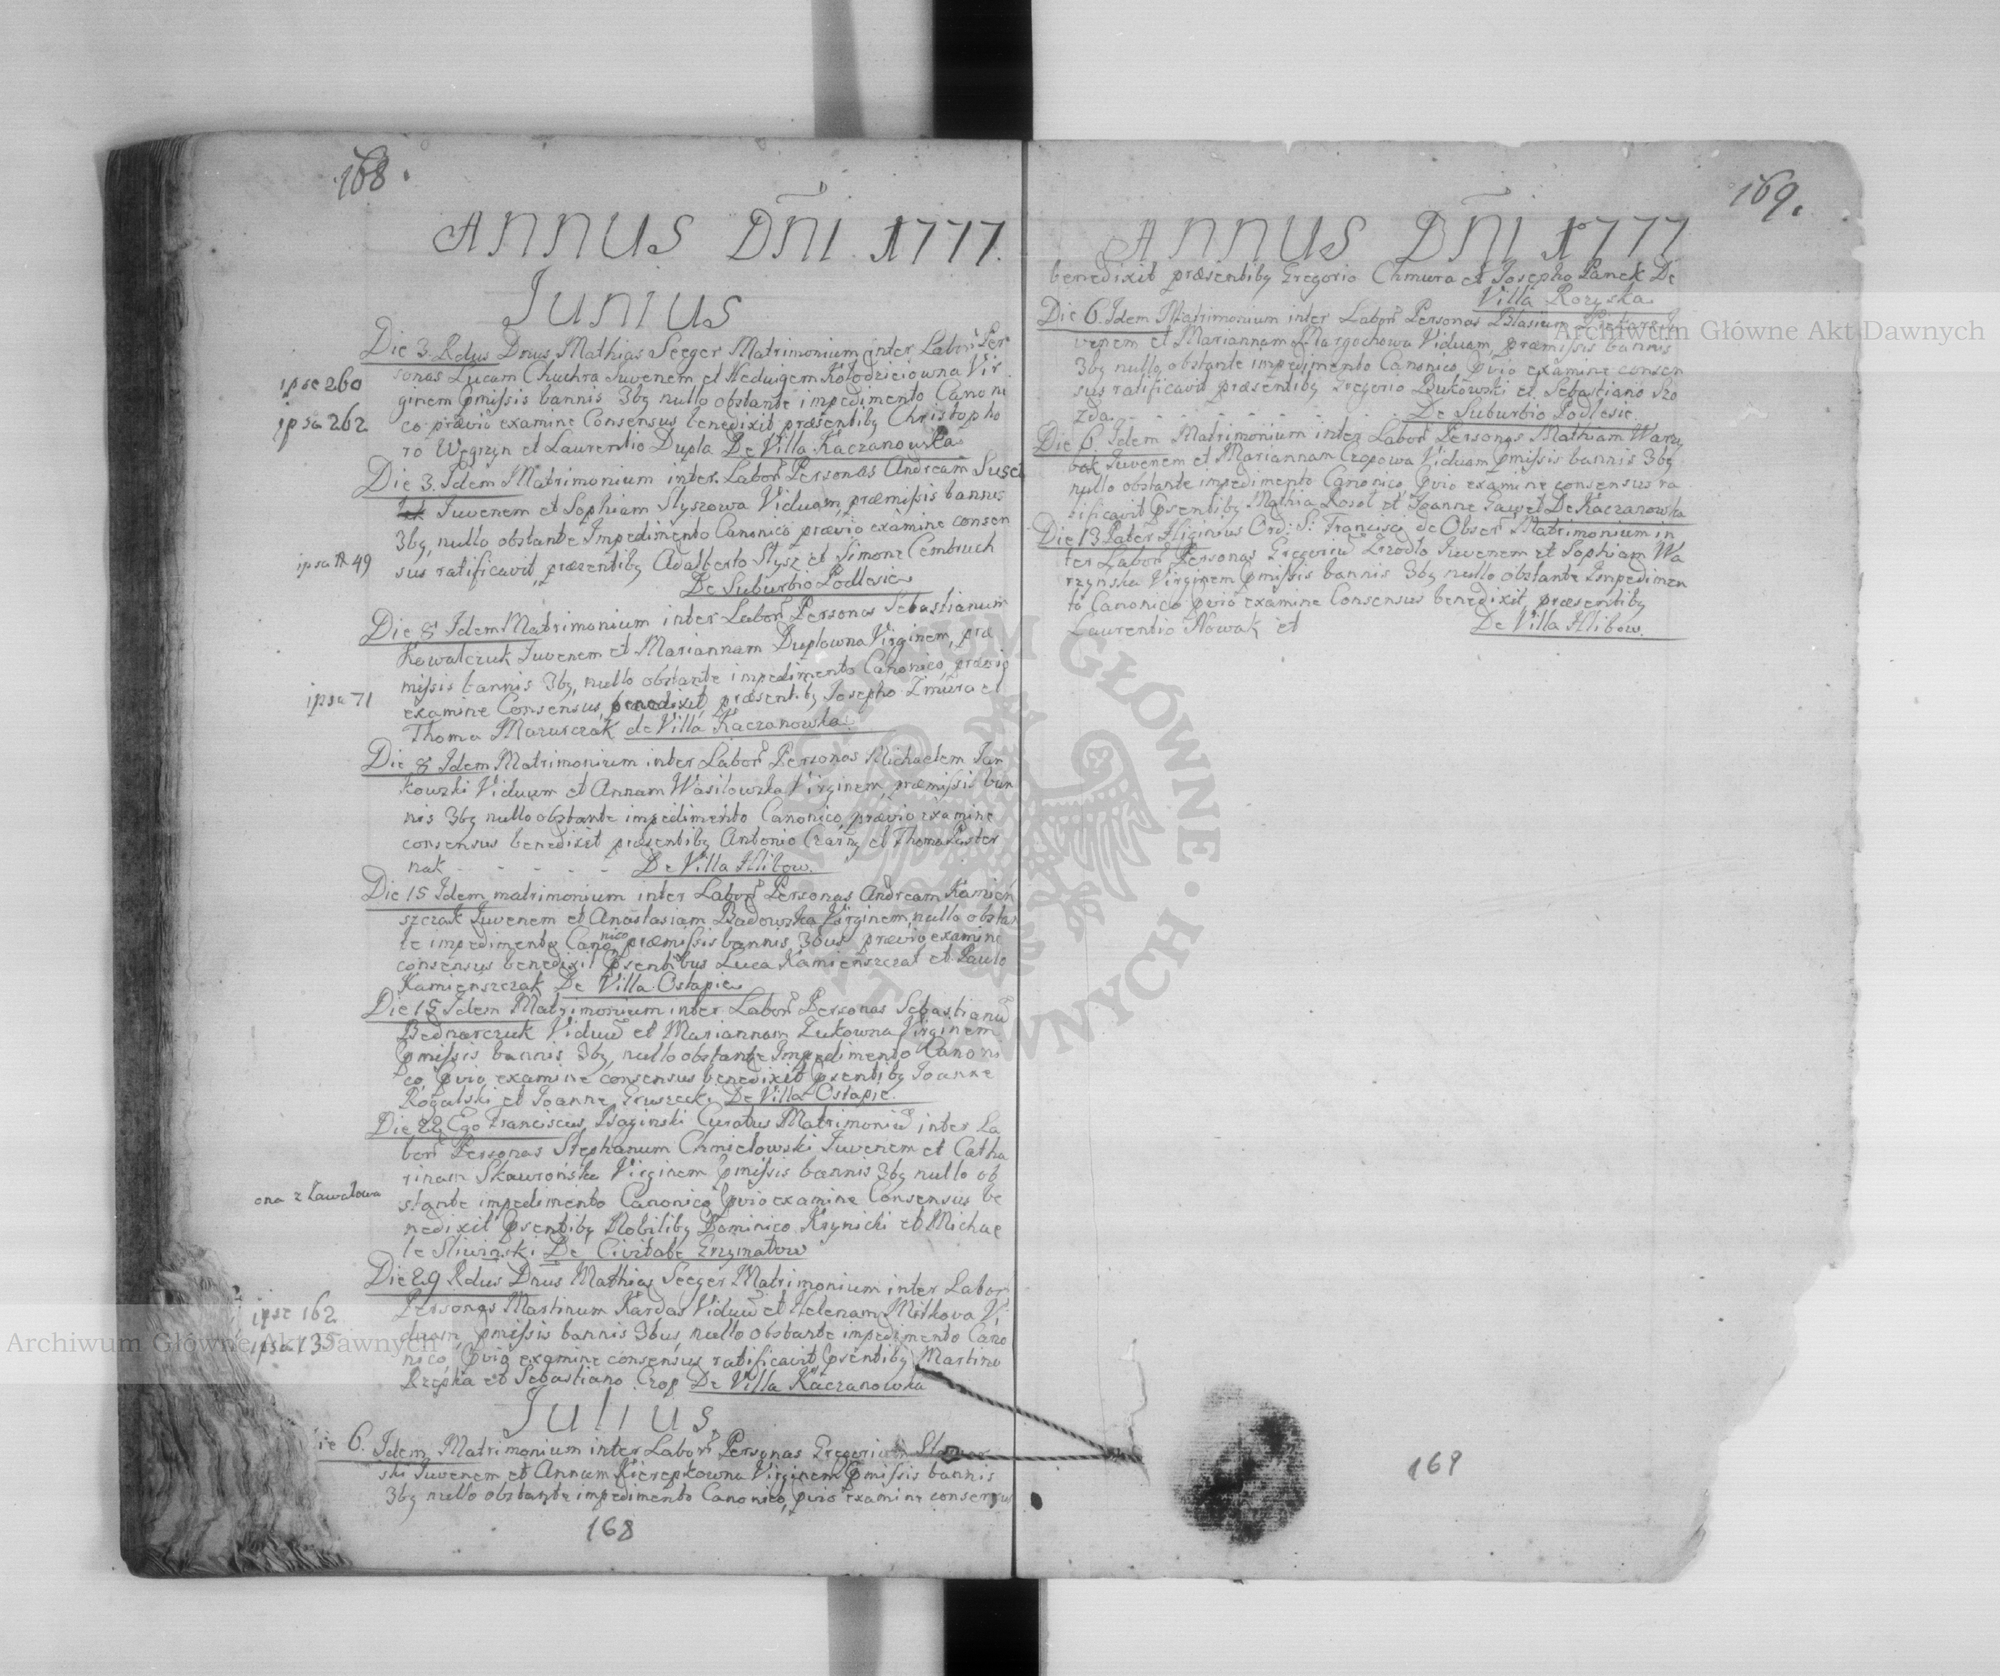 168.
ANNUS DÑI 1777.
JUNIUS
Die 3. Rdus Dnus Mathias Seeger Matrimonium inter Labor Per
sonas Lucam Chuchra Juvenem et Hedvigem Kołodzieiowna Vir
ipse 260
ginem pmissis bannis 3bg nullo obstante impedimento Canoni
ipsa 262
co prævio examine Consensus benedixit præsentibg Christopho
ro Węgrzyn et Laurentio Dupla De Villa Kaczanowska
Die 3. Idem Matrimonium inter Labor Personas Andream
Juvenem et Sophiam Styszowa Viduam præmissis bannis
3bg, nullo obstante Impedimento Canonico prævio examine consen
ipsa 49
sus ratificavit, præzentibg Adalberto Stysz et Simone Cembruch
De Suburbio Podlesie
Die 8 Idem Matrimonium inter Labor Personas Sebastianum
Kowalczuk Juvenem et Mariannam Duplowna Virginem, præ
missis bannis 3bg, nullo obstante impedimento Canonico, prævio
ipsa 71
examine Consensus, benedixit, præsentibg Josepho Zmura et
Thoma Mazurczak de Villa Kaczanowska
Die 8 Idem Matrimonium inter Labor Personas Michaelem Jan
kowski Viduum et Annam Wasilowska Virginem, præmissis ban
nis 3bg nullo obstante impedimento Canonico, prævio examine
consensus benedixit præsentibg Antonio Czarny et Thoma Paster
nak - - - - - De Villa Hlibow.
Die 15 Idem matrimonium inter Labor Personas Andream Kamien
szczak Juvenem et Anastasiam Badowska Virginem, nullo obstan
te impedimento Canonico præmissis bannis 3bus prævio examine
consensus benedixit psentibus Luca Kamienszczak et Paulo
Kamienszczak De Villa Ostapie
Die 15 Idem Matrimonium inter Labor Personas Sebastianū
Bednarczuk Viduū et Mariannam Lukowna Virginem
pmissis bannis 3bg, nullo obstante Impedimento Canoni
co, pvio examine consensus benedixit psentibg Joanne
Rogalski et Joanne Gruszecki De Villa Ostapie.
Die 22 Ego Franciscus Baginski Curatus Matrimoniū inter La
bor Personas Stephanum Chmielowski Juvenem et Catha
rinam Skawrońska Virginem pmissis bannis 3bg nullo ob
ona z Ławałowa
stante impedimento Canonico pvio examine Consensus be
nedixit psentibg Nobilibg Dominico Krynicki et Michae
le Sliwinski De Civitate Grzymałow
Die 29 Rdus Dnus Mathias Seeger Matrimonium inter Labor
ipse 162
Personas Martinum Kardas Viduū et Helenam Mitkova Vi
ipsa 135
duam, pmissis bannis 3bus, nullo obstante impedimento Cano
nico, pvio examine consensus ratificavit psentibg Martino
Rzepka et Sebastiano Czop De Villa Kaczanowka
JULIUS
Die 6. Idem Matrimonium inter Labor Personas Gregorium
ski Juvenem et Annam Kierepkowna Virginem pmissis bannis
3bg nullo obstante impedimento Canonico, pvio examine consensus
168
169.
ANNUS DÑI 1777
benedixit præsentibg Gregorio Chmura et Josepho Panek De
Villa Rozyska
Die 6. Idem Matrimonium inter Labor Personas Blasium Piekarz Ju
venem et Mariannam Margochowa Viduam, præmissis bannis
3bg nullo, obstante impedimento Canonico, pvio examine consen
sus ratificavit præsentibg Gregorio Bukowski et Sebastiano Szo
zda. - - - - - De Suburbio Podlesie.
Die 6 Idem Matrimonium inter Labor Personas Mathiam Warzy
bok Juvenem et Mariannam Czopowa Viduam pmissis bannis 3bg
nullo obstante impedimento Canonico, pvio examine consensus ra
tificavit psentibg Mathia Rosoł et Joanne Gaweł De Kaczanowka
Die 13 Pater Higinius Ord: S: Francisci de Obser Matrimonium in
ter Labor Personas Gregoriū Zrzodło Juvenem et Sophiam Wa
rzynska Virginem pmissis bannis 3bg nullo obstante Impedimen
to Canonico pvio examine Consensus benedixit, præsentibg
Laurentio Nowak et De Villa Hlibow.
169
Archiwum Główne Akt Dawnych
Archiwum Główne Akt Dawnych
ARCHIWUM GŁÓWNE AKT DAWNYCH